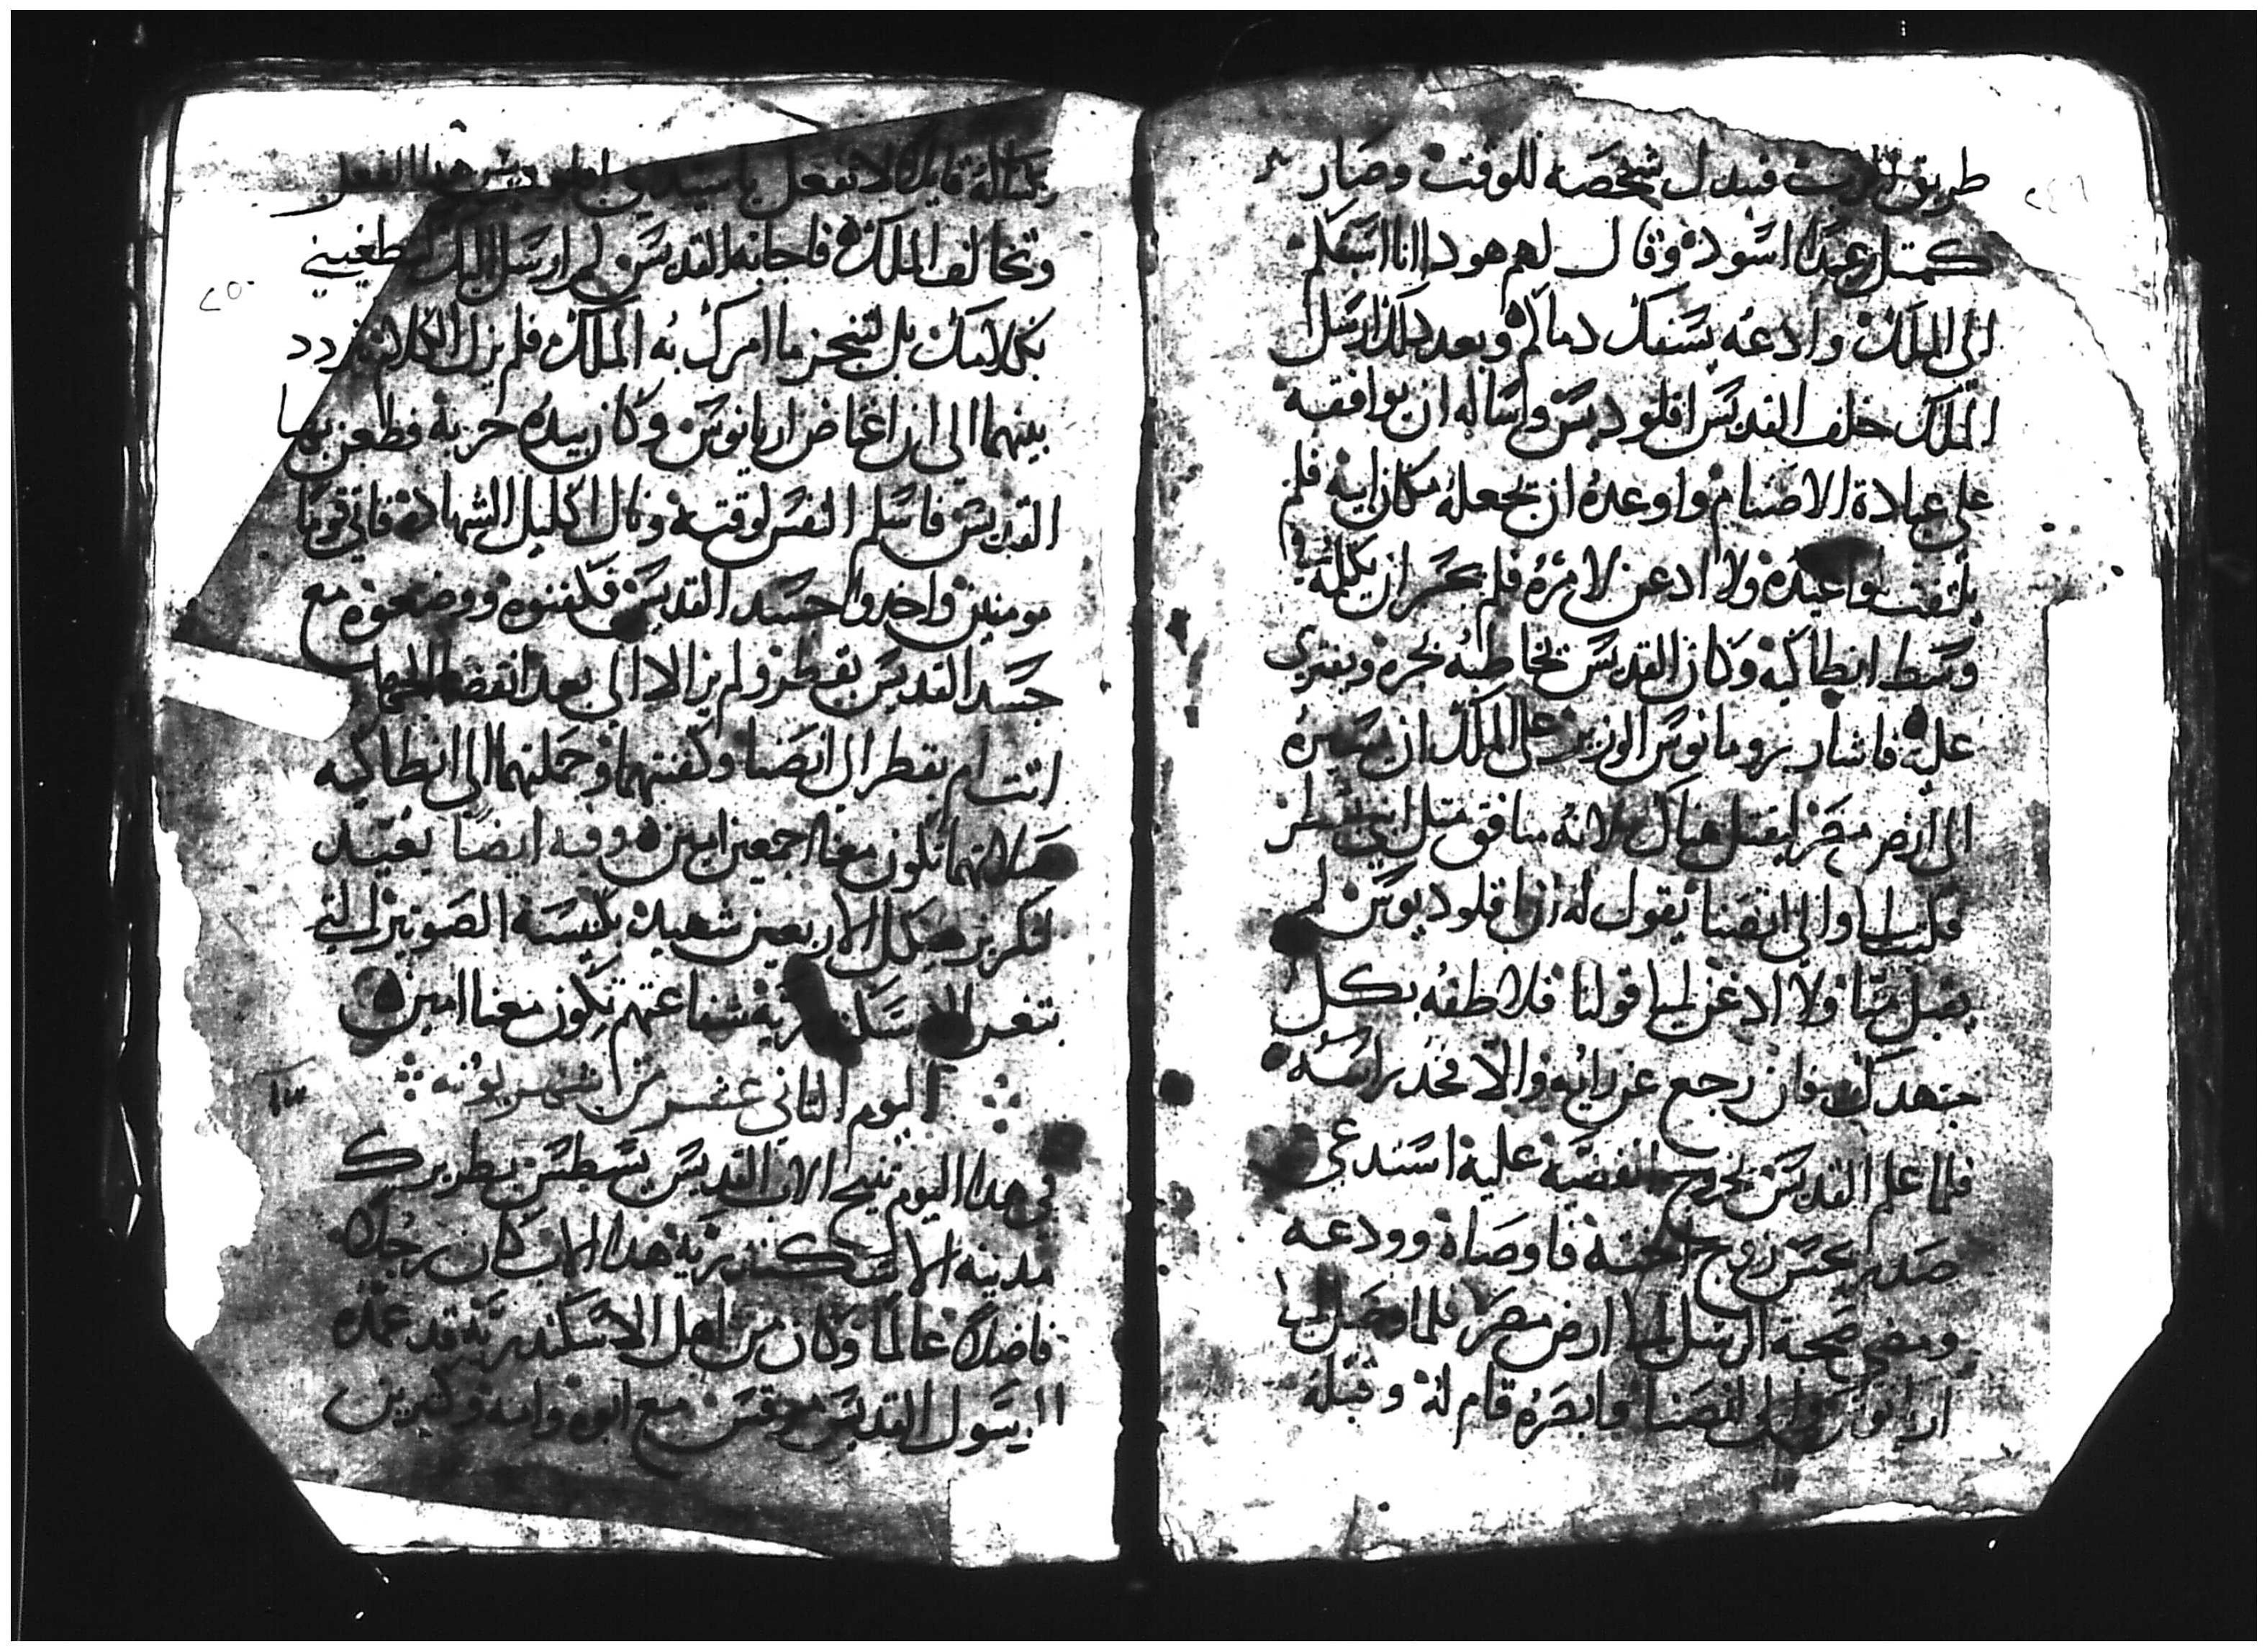 ٢٤٩
طريق الرب فبدل شخصه للوقت وصار
كمتل عبدا اسود وقال لهم هودا انا اسلم
الى الملك وادعه يسفك دمائكم وبعد دلك ارسل
الملك خلف القديس اقلوديس وساله ان يوافقه
على عبادة الاصنام واوعده ان يجعله مكان ابيه فلم
يلتفت لمواعيده ولا ادعن لامره فلم يجسر ان يكلمه في
وسط انطاكيه وكان القديس يخاطبه بحره ويفتري
عليه فاشار رومانوس الوزير على الملك ان يسيره
الى ارض مصر ليقتل هناك لانه منافق متل ابني بقطر
فكتب الى والى انصنا يقول له ان اقلوديوس لم
يقبل منا ولا ادعن الى قولنا فلاطفه بكل
جهدك فان رجع عن رايه والا فخد راسه
فلما علم القديس بخروج القضيه عليه استدعى
صدريخس زوج اخته فاوصاه وودعه
ومضى صحبة الرسل الى ارض مصر فلما وصل الى
اريانوس والى انصنا فابصره قام له وقبله
٢٥٠
قايلا لا تفعل يا سيدي اقلوديس هدا الفعل
وتخالف الملك فاجابه القديس لم ارسل اليك لتطغيني
بكلامك بل لتنجز ما امرك به الملك فلم يزل الكلام يردد
بينهما الى ان اغتاض اريانوس وكان بيده حربه فطعن بها
القديس فاسلم النفس لوقته ونال اكليل الشهاده فاتى قوما
مومنين واخدوا جسد القديس فكفنوه ووضعوه مع
جسد القديس بقطر ولم يزالا الى بعد انقضا
اتت ام بقطر الى انصنا وكفنتهما وحملتهما الى انطاكيه
صلاتهما تكون معنا اجمعين امين وفيه ايضا يعيد
لتكريز هيكل الاربعين شهيد بكنيسة الصوتير التي
بتغر الاسكندريه شفاعتهم تكون معنا امين
اليوم التاني عشر من شهر بوونه
١٢
في هدا اليوم تنيح الاب القديس يسطس بطريرك
مدينه الاسكندريه هدا الاب كان رجلا
فاضلا عالما وكان من اهل الاسكندريه قد عمده
الرسول القديس مرقس مع ابوه وامه وكتيرين